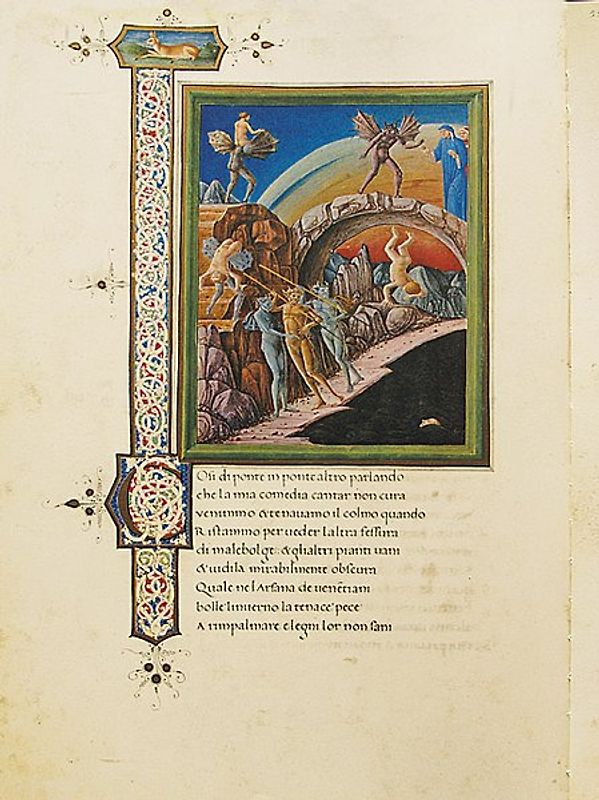 Cosi di ponte in ponte altro parlando
che la mia comedia cantar non cura
venimmo & tenavamo il colmo quando
Ristammo per veder laltra fessura
di malebolge & glialtri pianti vani
& vidila mirabilmente obscura
Quale nel Arsana de venetiani
bolle linverno la tenace pece
A rimpalmare e legni lor non sani